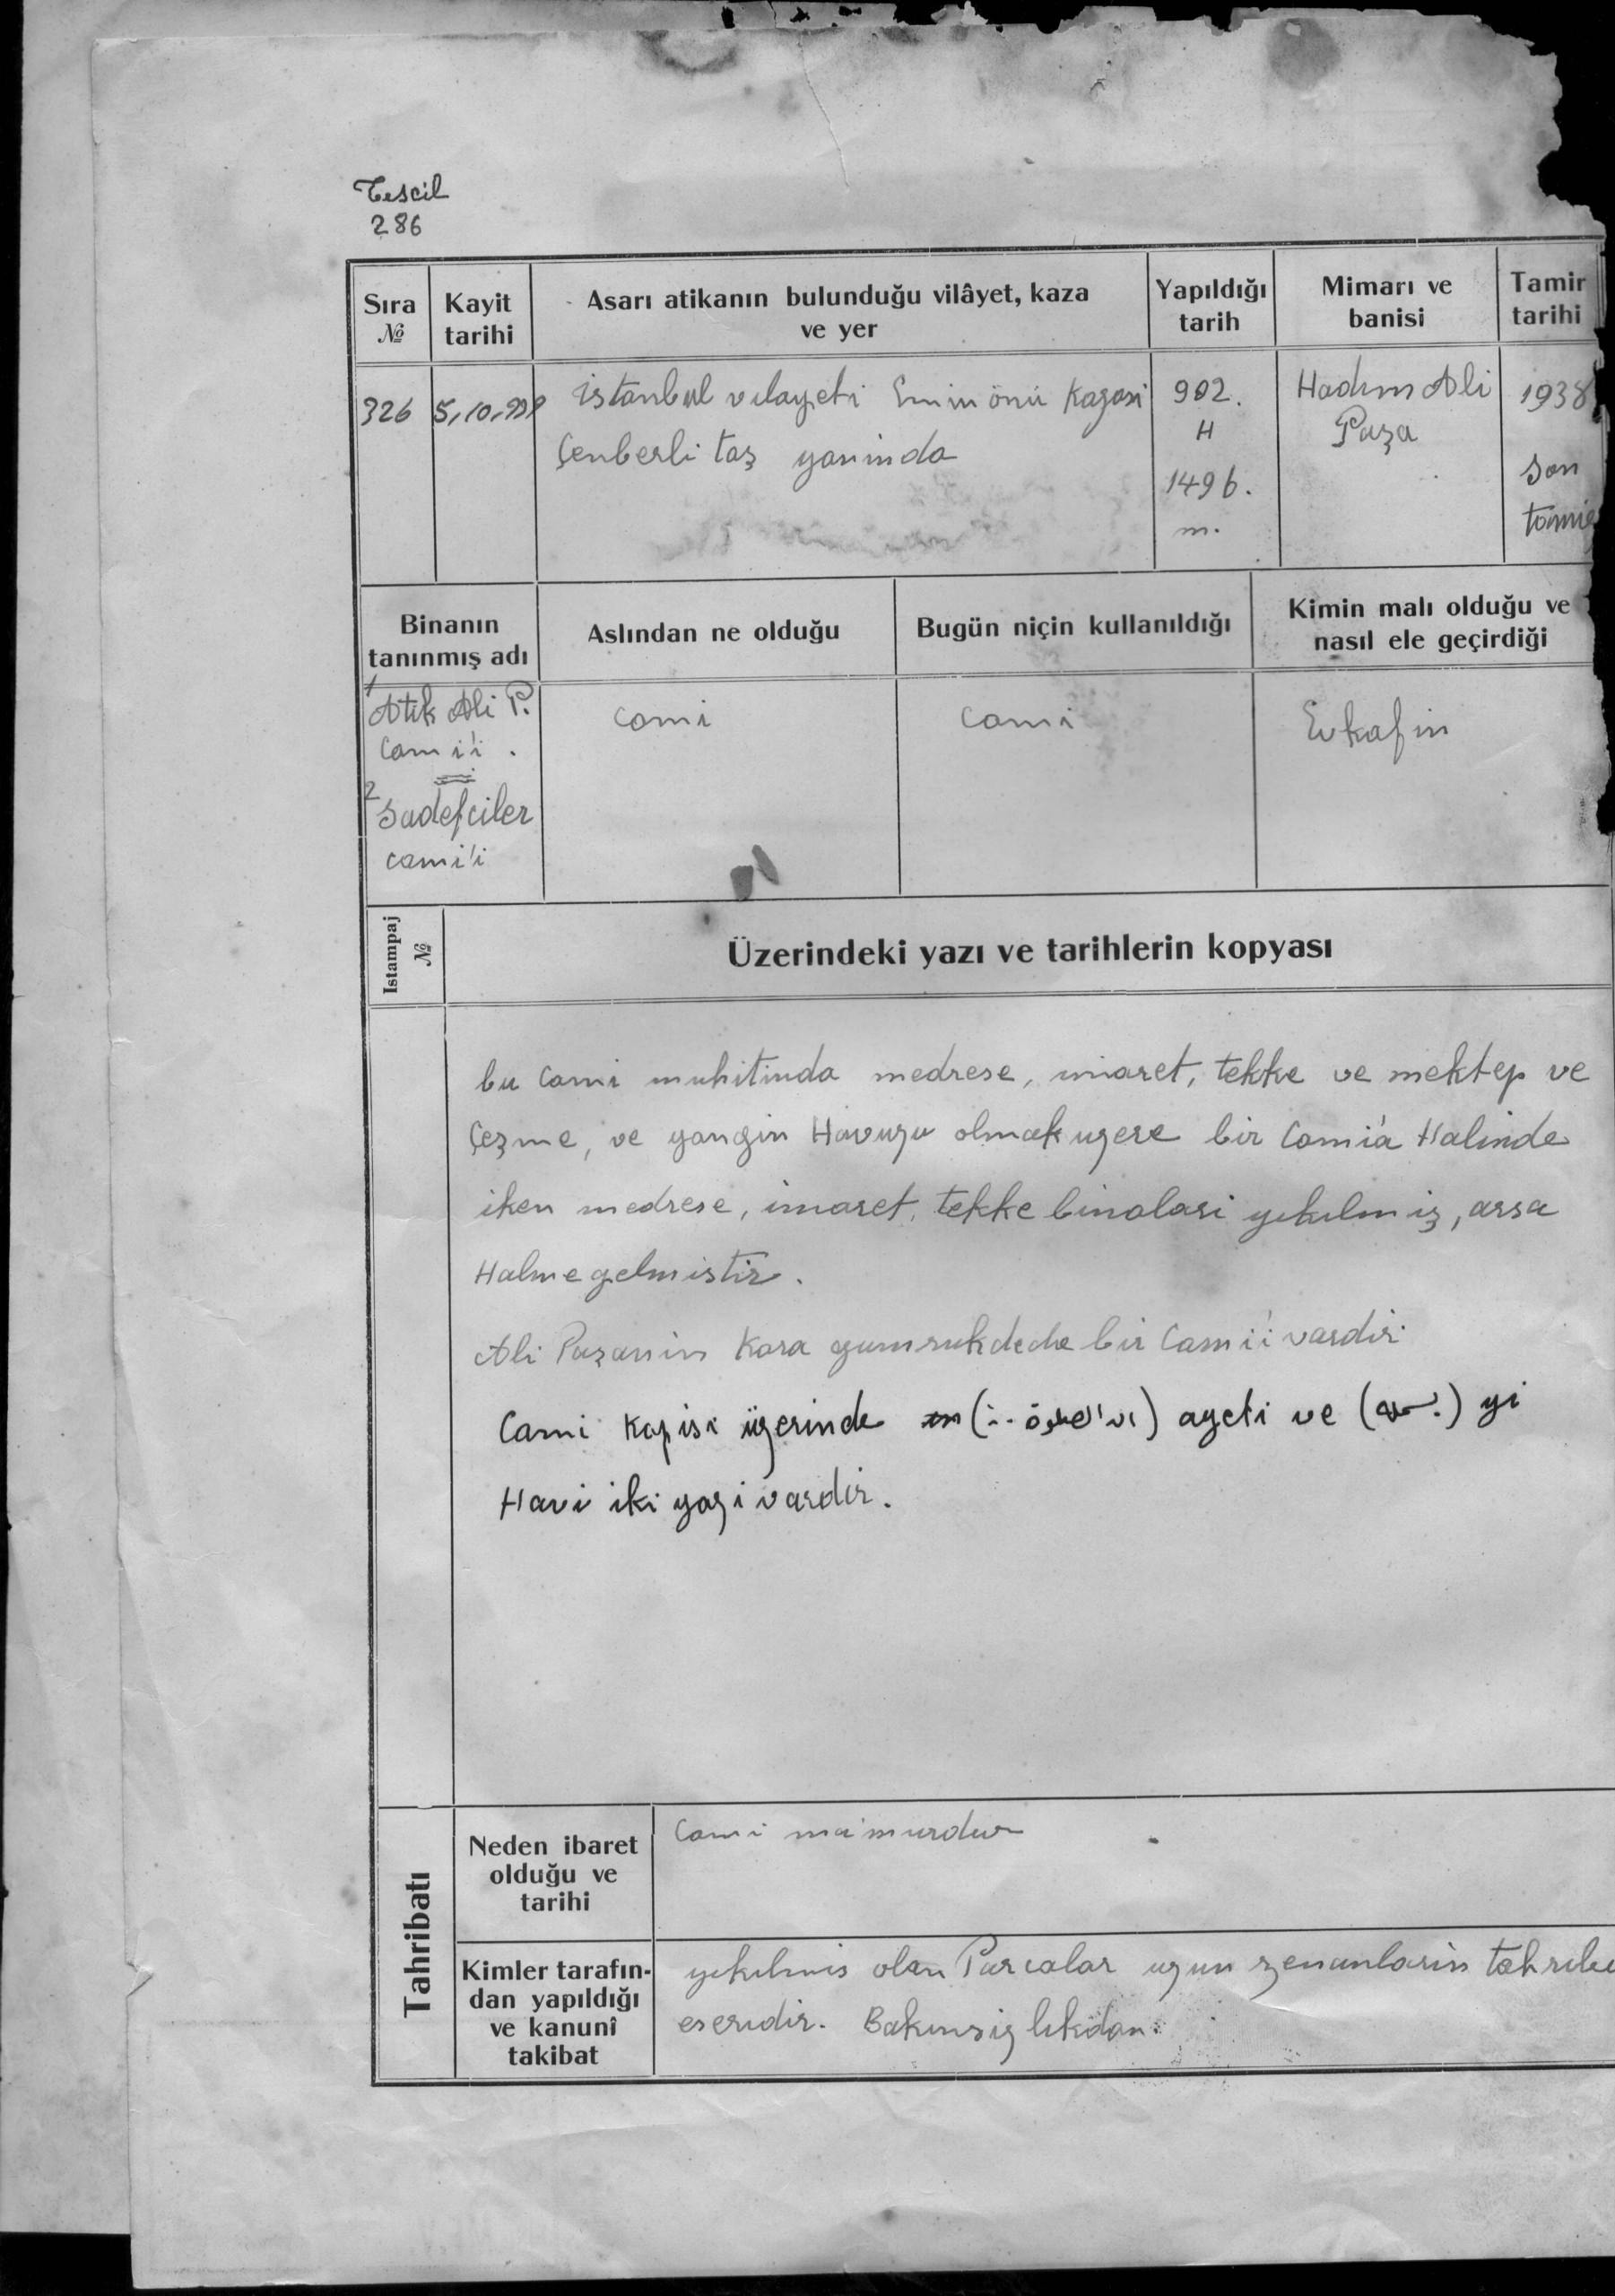 Tescil
286
Sıra
№
Kayit
tarihi
Asarı atikanın bulunduğu vilâyet, kaza
ve yer
Yapıldığı
tarih
Mimarı ve
banisi
Tamir
tarihi
326
5,10,939
istanbul vılayeti Eminönü Kazasi
Çenberli taş yaninda
902.
H
1496.
m.
Hadım Ali
Paşa
1938
son
Binanın
tanınmış adı
Aslından ne olduğu
Bugün niçin kullanıldığı
Kimin malı olduğu ve
nasıl ele geçirdiği
1
Atik Ali P.
Cami'i .
2
Sadefciler
cami'i
Cami
Cami
Evkafin
Istampaj
№
Üzerindeki yazı ve tarihlerin kopyası
bu Cami muhitinda medrese, imaret, tekke ve mektep ve
Çeşme, ve yangin Havuzu olmak uzere bir Camia Halinde
iken medrese, imaret, tekke binalari yıkılmiş, arsa
Haline gelmistir.
Ali Paşanin Kara gumrukdede bir Cami'i vardir
Cami Kapisi üzerinde ( ) ayeti ve ( ) yi
Havi iki yazi vardir.
Tahribatı
Neden ibaret
olduğu ve
tarihi
Cami ma'murdur
Kimler tarafın-
dan yapıldığı
ve kanunî
takibat
yıkılmis olan Parcalar uzun zemanlarin
eseridir. Bakımsızlıkdan.